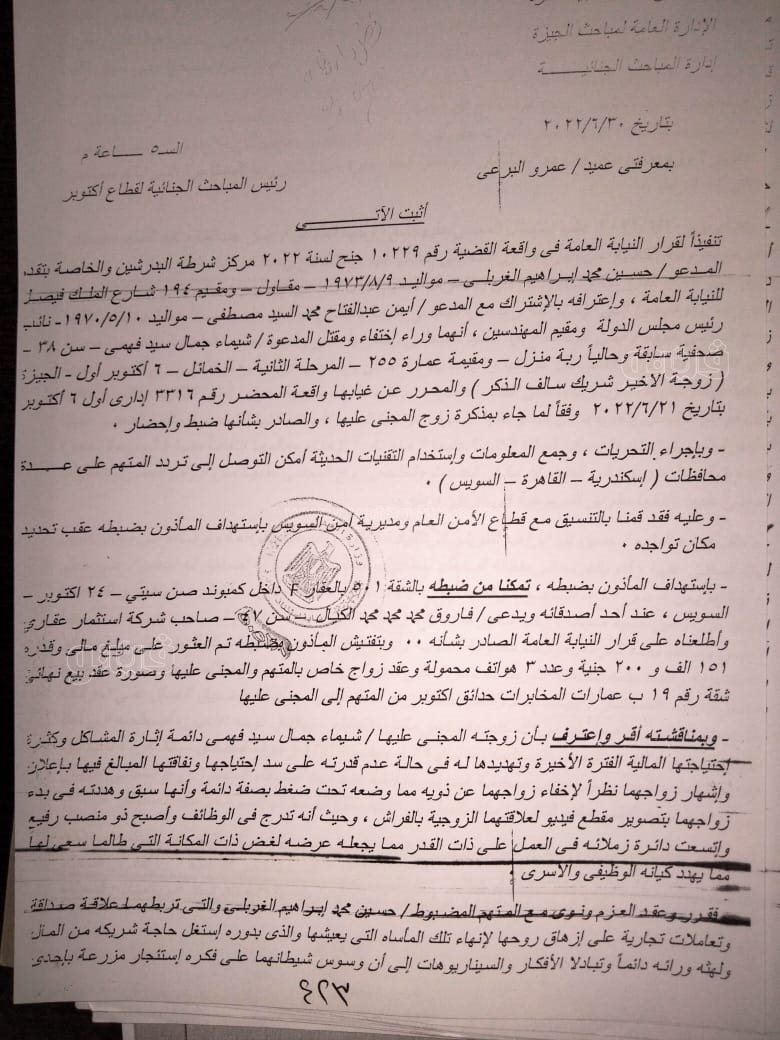 الإدارة العامة لمباحث الجيزة
إدارة المباحث الجنائيـــــة
بتاريخ ٢٠٢٢/٦/٣٠
الســ٥ ـــــاعة م
بمعرفتى عميد / عمرو البرعى
رئيس المباحث الجنائية لقطاع أكتوبر
أثبت الآتـــــــــى
تنفيذاً لقرار النيابة العامة فى واقعة القضية رقم ١٠٢٢٩ جنح لسنة ٢٠٢٢ مركز شرطة البدرشين والخاصة بتقدم
المدعو / حسين محمد إبراهيم الغربلى – مواليد ١٩٧٣/٨/٩ – مقاول – ومقيم ١٩٤ شارع الملك فيصل
للنيابة العامة ، وإعترافه بالإشتراك مع المدعو / أيمن عبدالفتاح محمد السيد مصطفى – مواليد ١٩٧٠/٥/١٠- نائب
رئيس مجلس الدولة ومقيم المهندسين ، أنهما وراء إختفاء ومقتل المدعوة / شيماء جمال سيد فهمى – سن ٣٨ –
صحفية سابقة وحالياً ربة منزل – ومقيمة عمارة ٢٥٥ – المرحلة الثانية – الخمائل – ٦ أكتوبر أول - الجيزة
( زوجة الاخير شريك سالف الذكر ) والمحرر عن غيابها واقعة المحضر رقم ٣٣١٦ إدارى أول ٦ أكتوبر
بتاريخ ٢٠٢٢/٦/٢١ وفقاً لما جاء بمذكرة زوج المجنى عليها ، والصادر بشأنها ضبط وإحضار .
- وبإجراء التحريات ، وجمع المعلومات وإستخدام التقنيات الحديثة أمكن التوصل إلى تردد المتهم على عـــدة
محافظات ( إسكندرية – القاهرة – السويس ) .
- وعليه فقد قمنا بالتنسيق مع قطاع الأمن العام ومديرية أمن السويس بإستهداف المأذون بضبطه عقب تحديد
مكان تواجده .
- بإستهداف المأذون بضبطه ، تمكنا من ضبطه بالشقة ٥٠١ بالعقار F داخل كمبوند صن سيتي – ٢٤ اكتوبر –
السويس ، عند أحد أصدقائه ويدعى / فاروق محمد محمد محمد الكيال – سن ٤٧ – صاحب شركة استثمار عقاري
وأطلعناه على قرار النيابة العامة الصادر بشأنه .. وبتفتيش المأذون بضبطه تم العثور على مبلغ مالى وقدره
١٥١ الف و ٢٠٠ جنية وعدد ٣ هواتف محمولة وعقد زواج خاص بالمتهم والمجنى عليها وصورة عقد بيع نهائى
شقة رقم ١٩ ب عمارات المخابرات حدائق اكتوبر من المتهم إلى المجنى عليها
- وبمناقشته أقر وإعترف بأن زوجته المجنى عليها / شيماء جمال سيد فهمى دائمة إثارة المشاكل وكثرة
إحتياجتها المالية الفترة الأخيرة وتهديدها له فى حالة عدم قدرته على سد إحتياجها ونفاقتها المبالغ فيها بإعلان
وإشهار زواجهما نظراً لإخفاء زواجهما عن ذويه مما وضعه تحت ضغط بصفة دائمة وأنها سبق وهددته فى بدء
زواجهما بتصوير مقطع فيديو لعلاقتهما الزوجية بالفراش ، وحيث أنه تدرج فى الوظائف وأصبح ذو منصب رفيع
وإتسعت دائرة زملائه فى العمل على ذات القدر مما يجعله عرضه لغض ذات المكانة التى طالما سعى لها
مما يهدد كيانه الوظيفى والأسرى .
فقرر وعقد العزم ونوى مع المتهم المضبوط / حسين محمد إبراهيم الغربلى والتى تربطهما علاقة صداقة
وتعاملات تجارية على إزهاق روحها لإنهاء تلك المأساه التى يعيشها والذى بدوره إستغل حاجة شريكه من المال
ولهثه ورائه دائماً وتبادلا الأفكار والسيناريوهات إلى أن وسوس شيطانهما على فكره إستئجار مزرعة بإحدى
٤٢٣